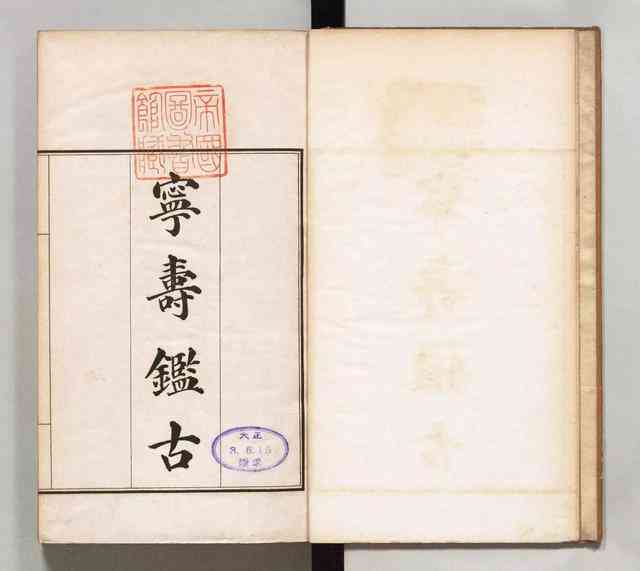 帝國
圖書
館藏
寧壽鑑古
大正
3.6.15
購求